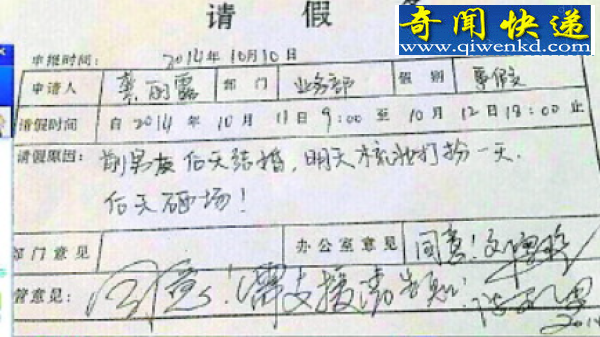 请假
奇闻快递
www.qiwenkd.com
申报时间: 2014年10月10日
申请人 龚丽露 部门 业务部 假别 事假
请假时间 自2014年10月11日9:00至10月12日18:00止
请假原因: 前男友后天结婚,明天梳妆打扮一天.
后天砸场!
部门意见 办公室意见 同意!
管意见: 同意!需支援请告知!
2014